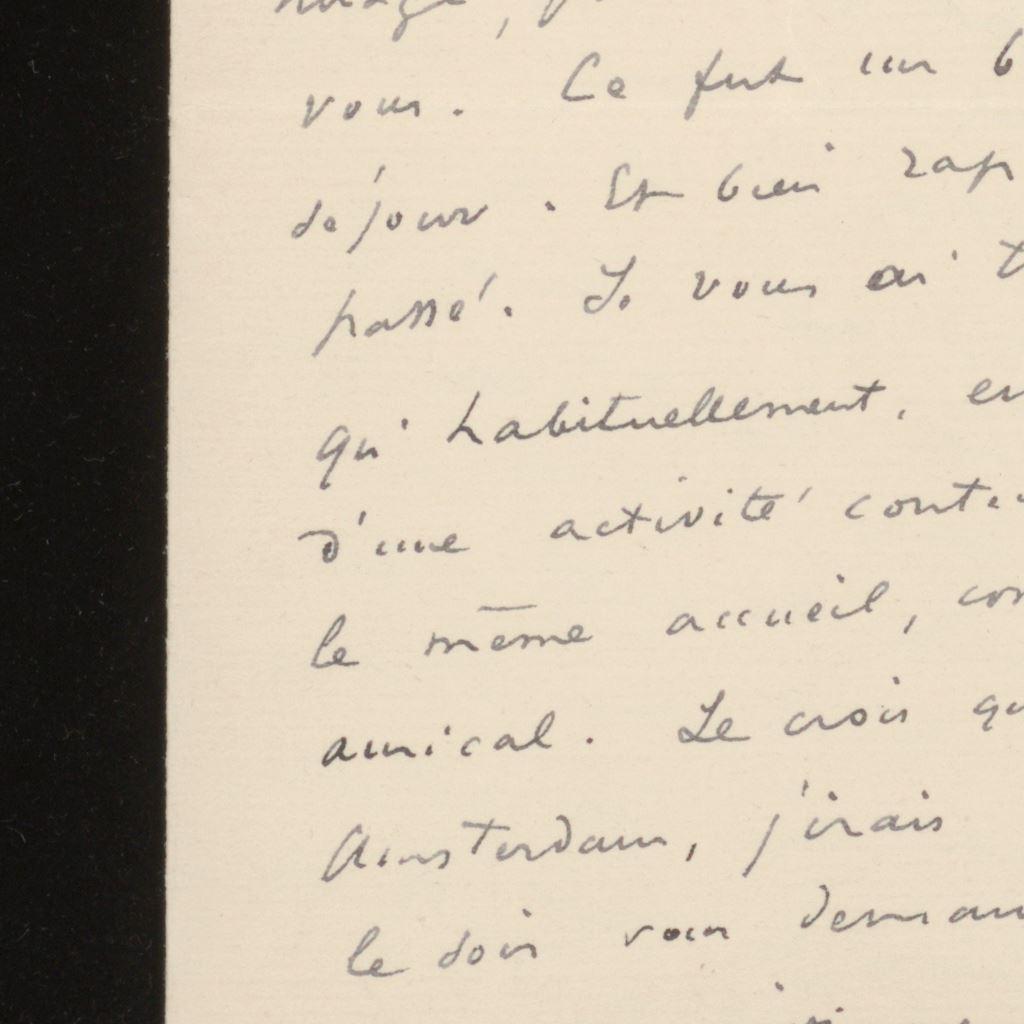 vous. Ce fut un b
séjour. Et bien rap
passé. Je vous ai t
qu'habituellement, en
d'une activité conti
le même accueil, con
amical. Je crois qu
Amsterdam, j'irais
le soir vous deman